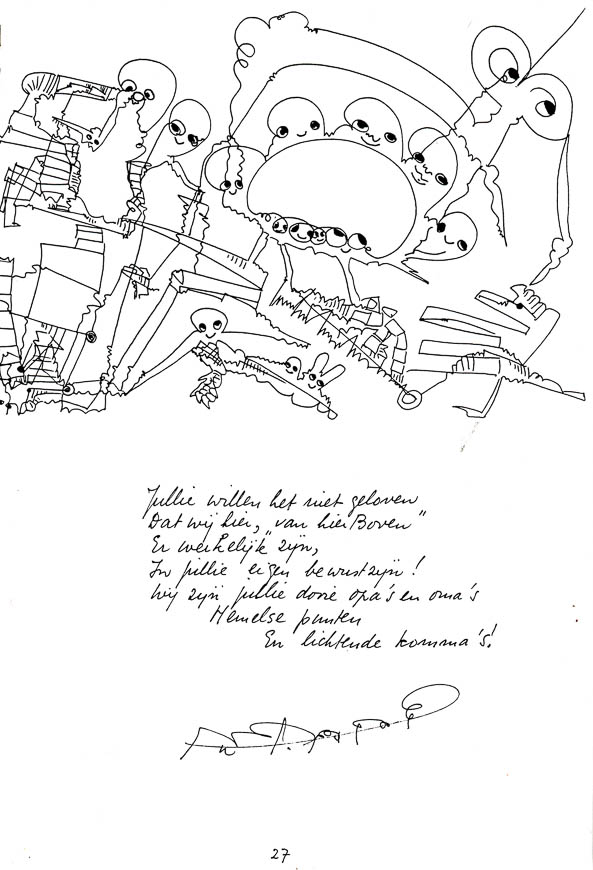 Jullie willen het niet geloven
Dat wij hier, "van hier Boven"
Er werkelijk zijn,
In jullie eigen bewustzijn!
Wij zijn jullie dooie opa's en oma's
Hemelse punten
En lichtende komma's!
27